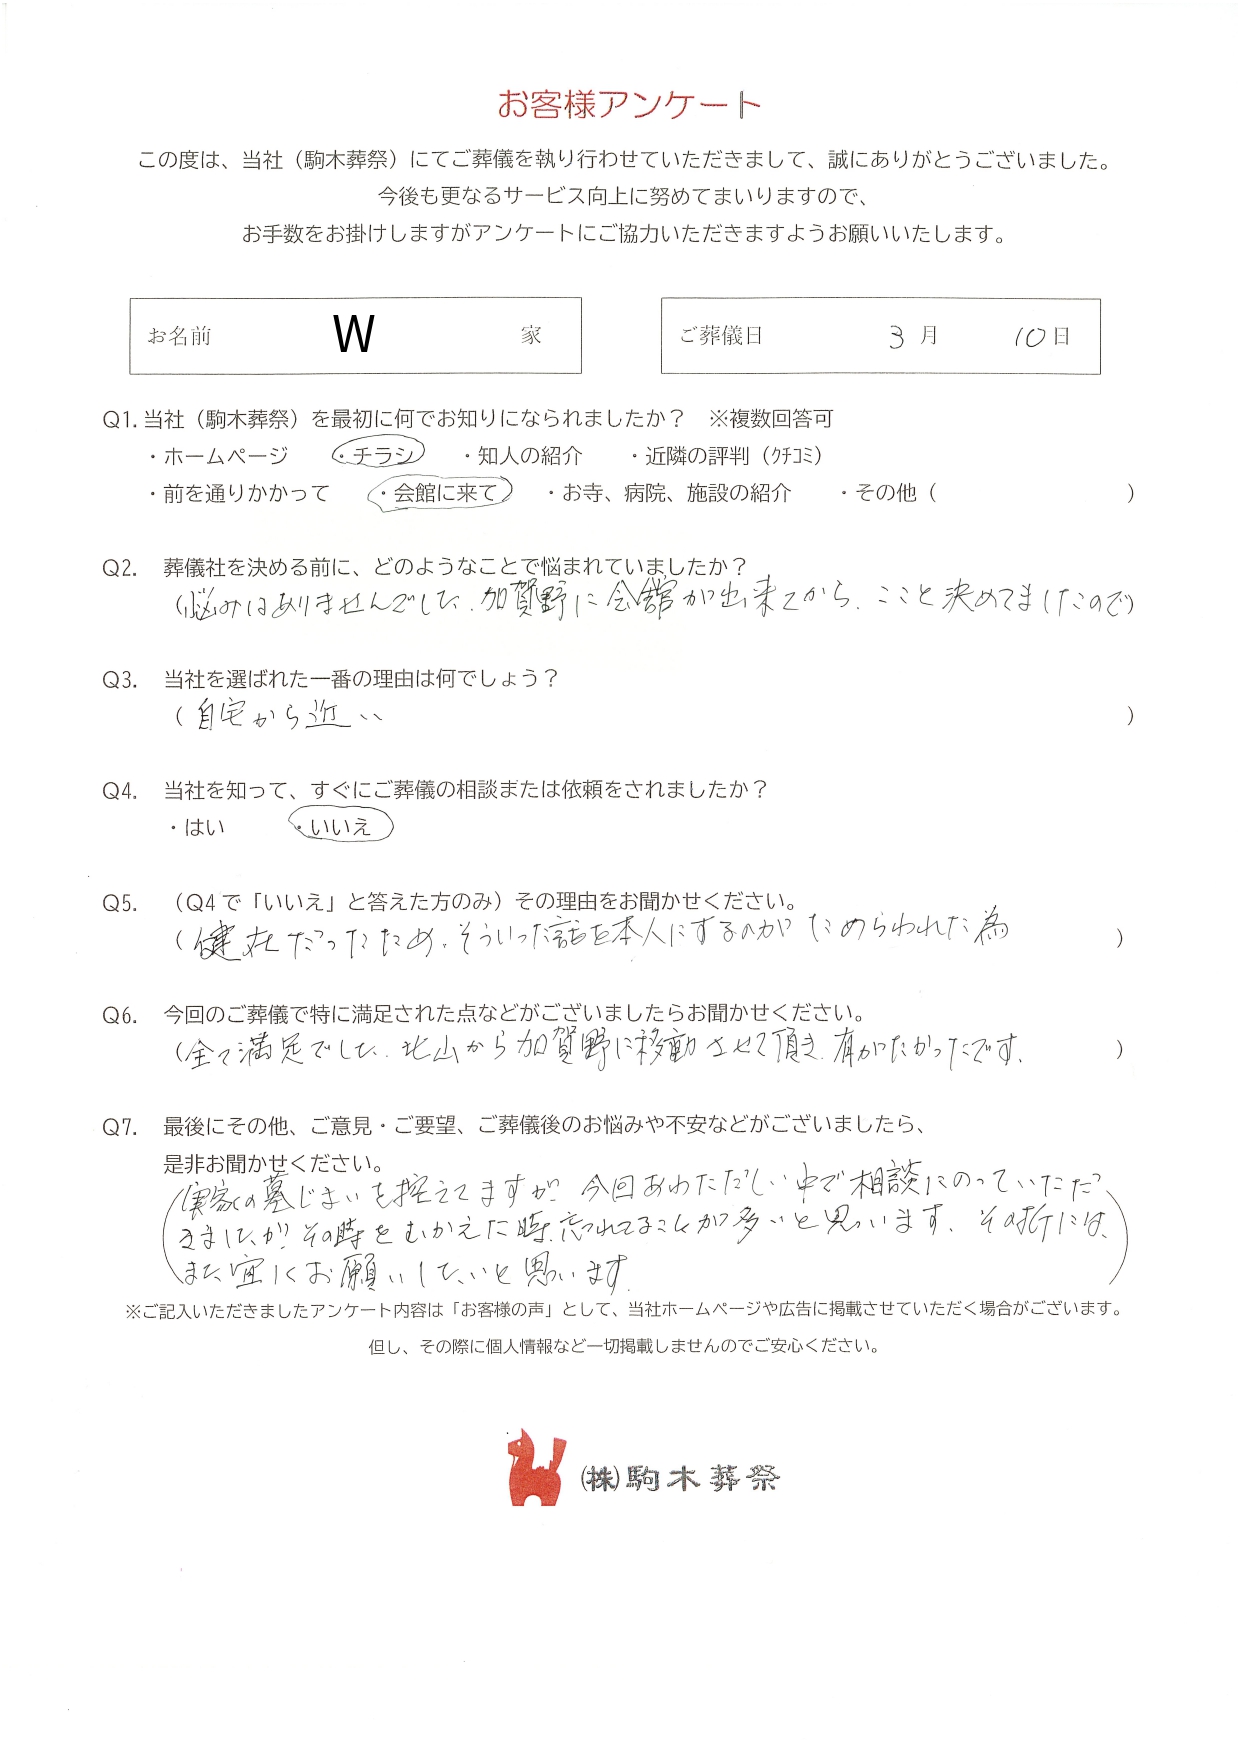 お客様アンケート
この度は、当社（駒木葬祭）にてご葬儀を執り行わせていただきまして、誠にありがとうございました。
今後も更なるサービス向上に努めてまいりますので、
お手数をお掛けしますがアンケートにご協力いただきますようお願いいたします。
お名前 W 家 ご葬儀日 3月 10日
Q1. 当社（駒木葬祭）を最初に何でお知りになられましたか？ ※複数回答可
・ホームページ ・チラシ ・知人の紹介 ・近隣の評判（クチコミ）
・前を通りかかって ・会館に来て ・お寺、病院、施設の紹介 ・その他（ ）
Q2. 葬儀社を決める前に、どのようなことで悩まれていましたか？
（悩みはありませんでした、加賀野に会館が出来てから、ここと決めてましたので）
Q3. 当社を選ばれた一番の理由は何でしょう？
（自宅から近い ）
Q4. 当社を知って、すぐにご葬儀の相談または依頼をされましたか？
・はい ・いいえ
Q5. （Q4で「いいえ」と答えた方のみ）その理由をお聞かせください。
（健在だったため、そういった話を本人にするのがためらわれた為 ）
Q6. 今回のご葬儀で特に満足された点などがございましたらお聞かせください。
（全て満足でした、北山から加賀野に移動させて頂き、有がたかったです、 ）
Q7. 最後にその他、ご意見・ご要望、ご葬儀後のお悩みや不安などがございましたら、
是非お聞かせください。
（実家の墓じまいを控えてますが 今回あわただしい中で相談にのっていただ
きましたが その時をむかえた時、忘れてることが多いと思います、その折には、
また宜しくお願いしたいと思います）
※ご記入いただきましたアンケート内容は「お客様の声」として、当社ホームページや広告に掲載させていただく場合がございます。
但し、その際に個人情報など一切掲載しませんのでご安心ください。
（株）駒木葬祭